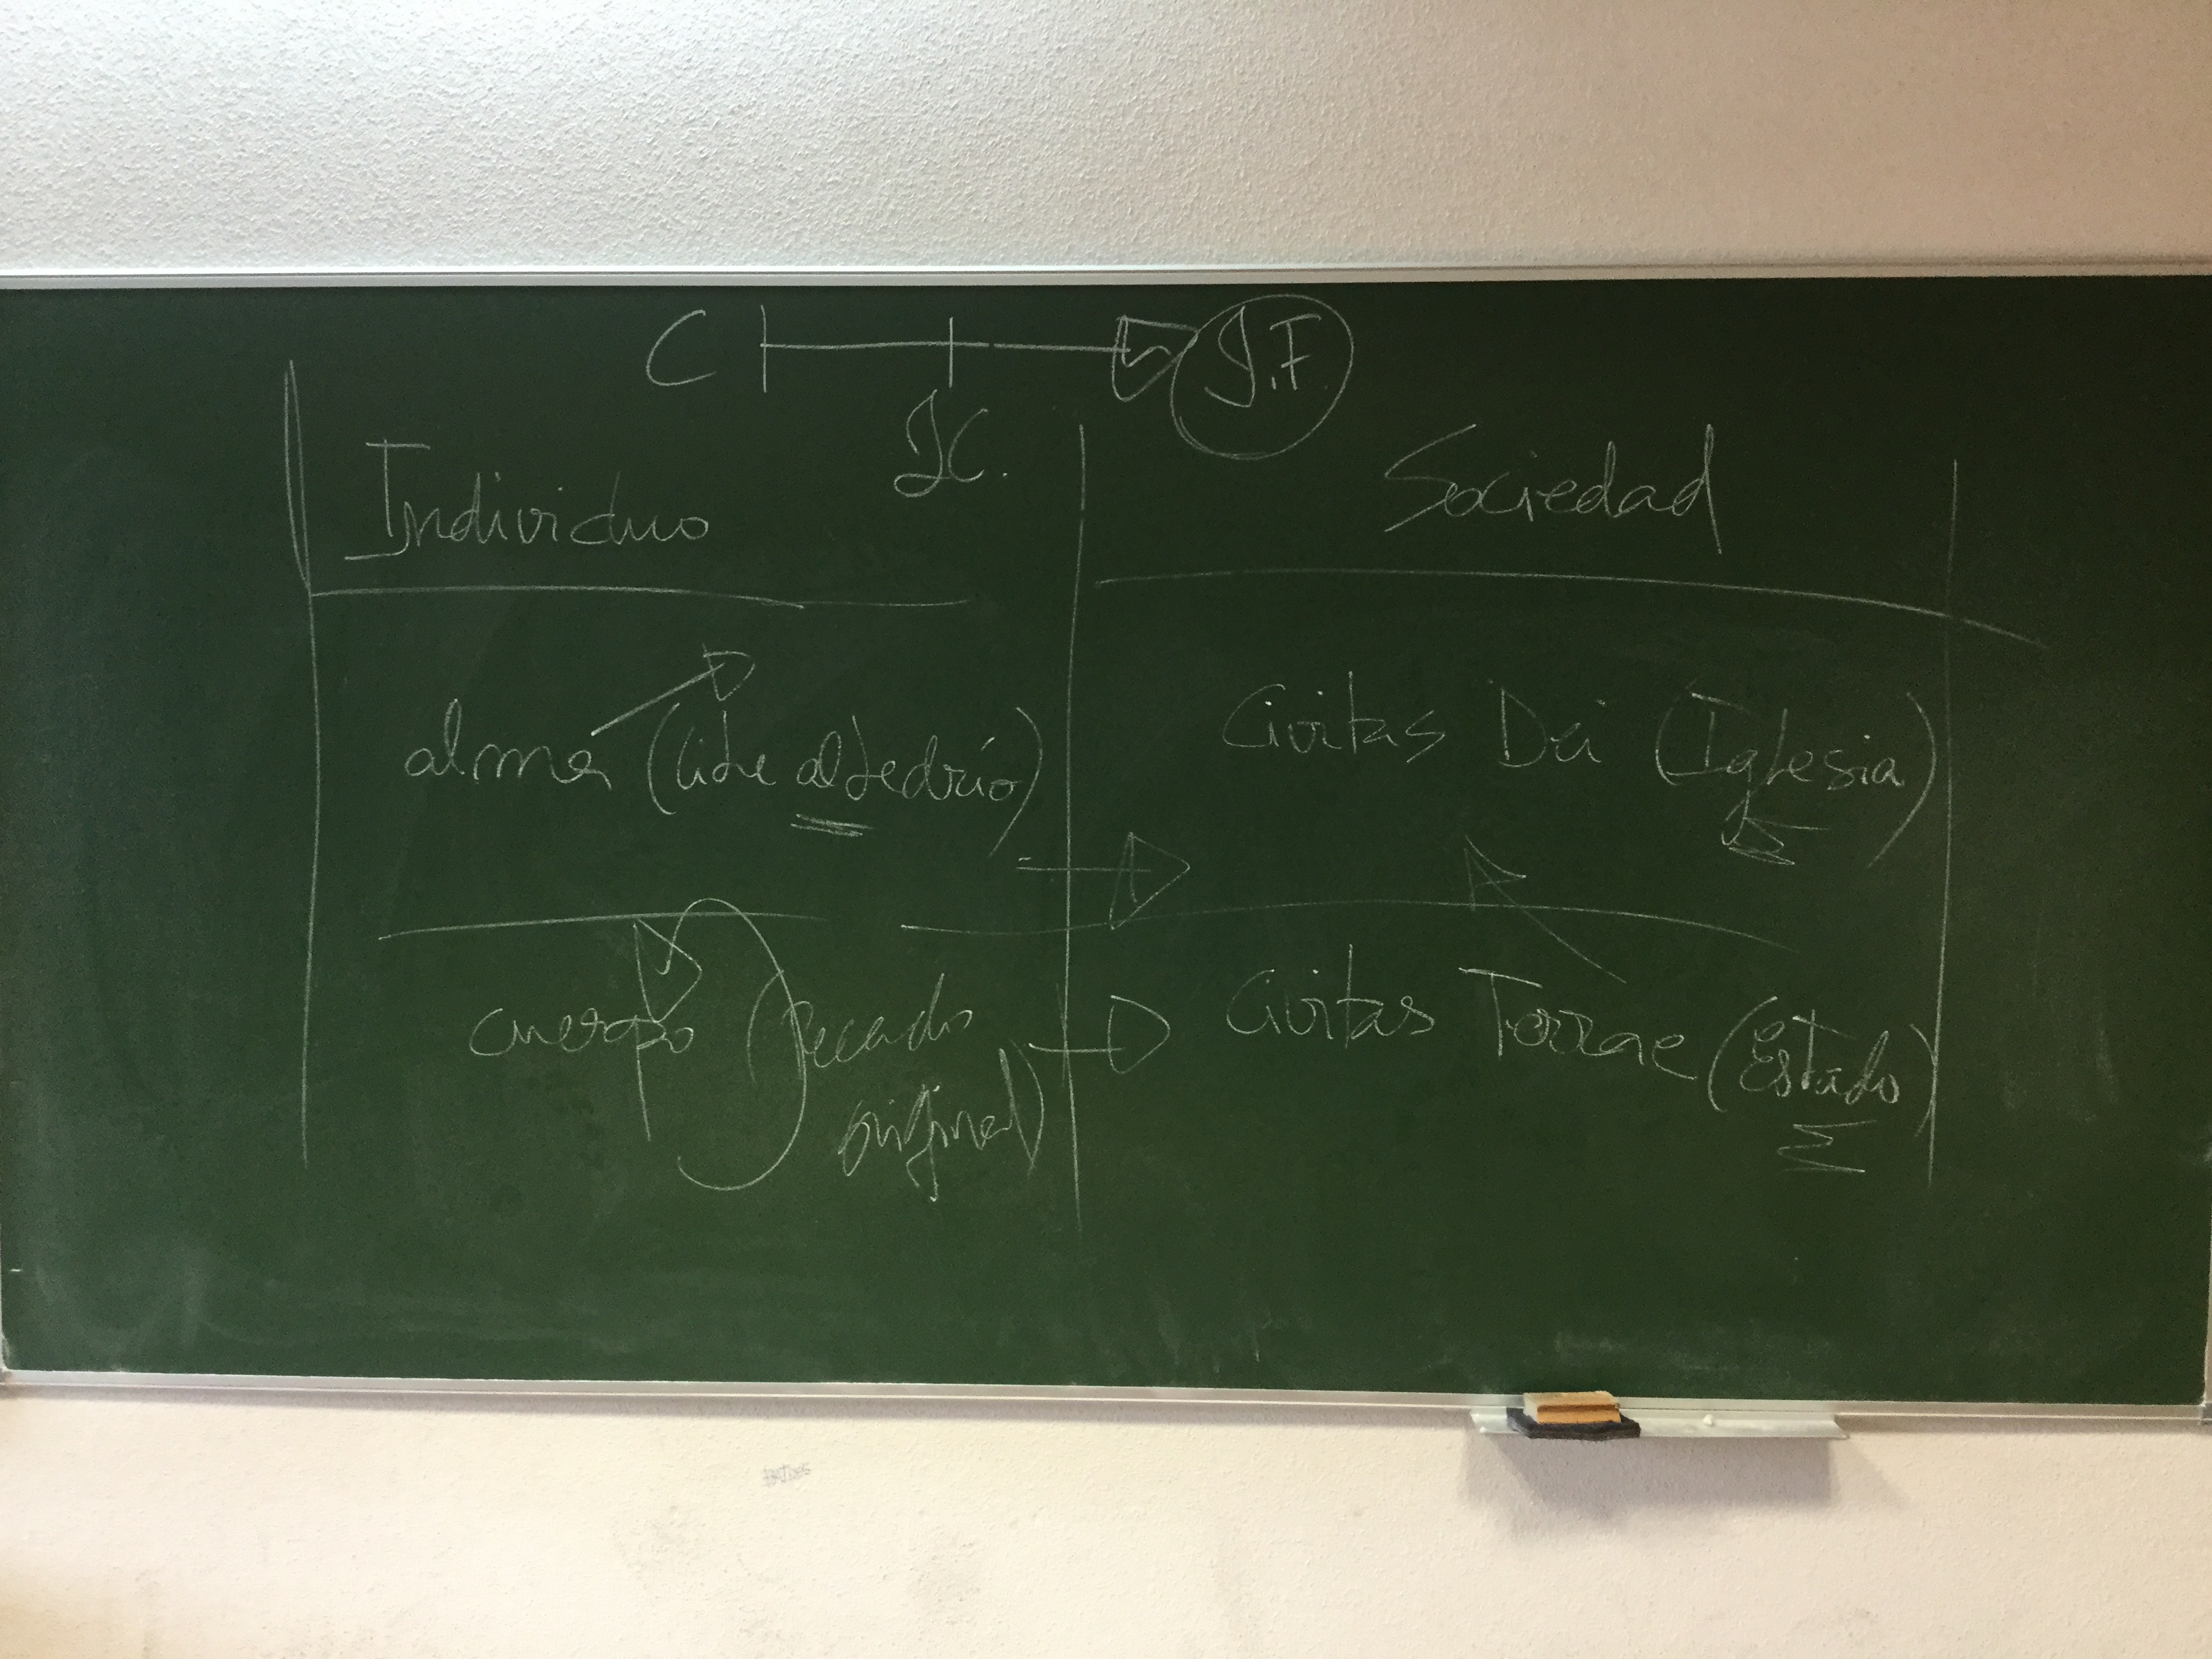 C J.F.
JC.
Individuo Sociedad
alma (libre albedrío) Civitas Dei (Iglesia)
cuerpo (pecado Civitas Terrae (Estado)
original)